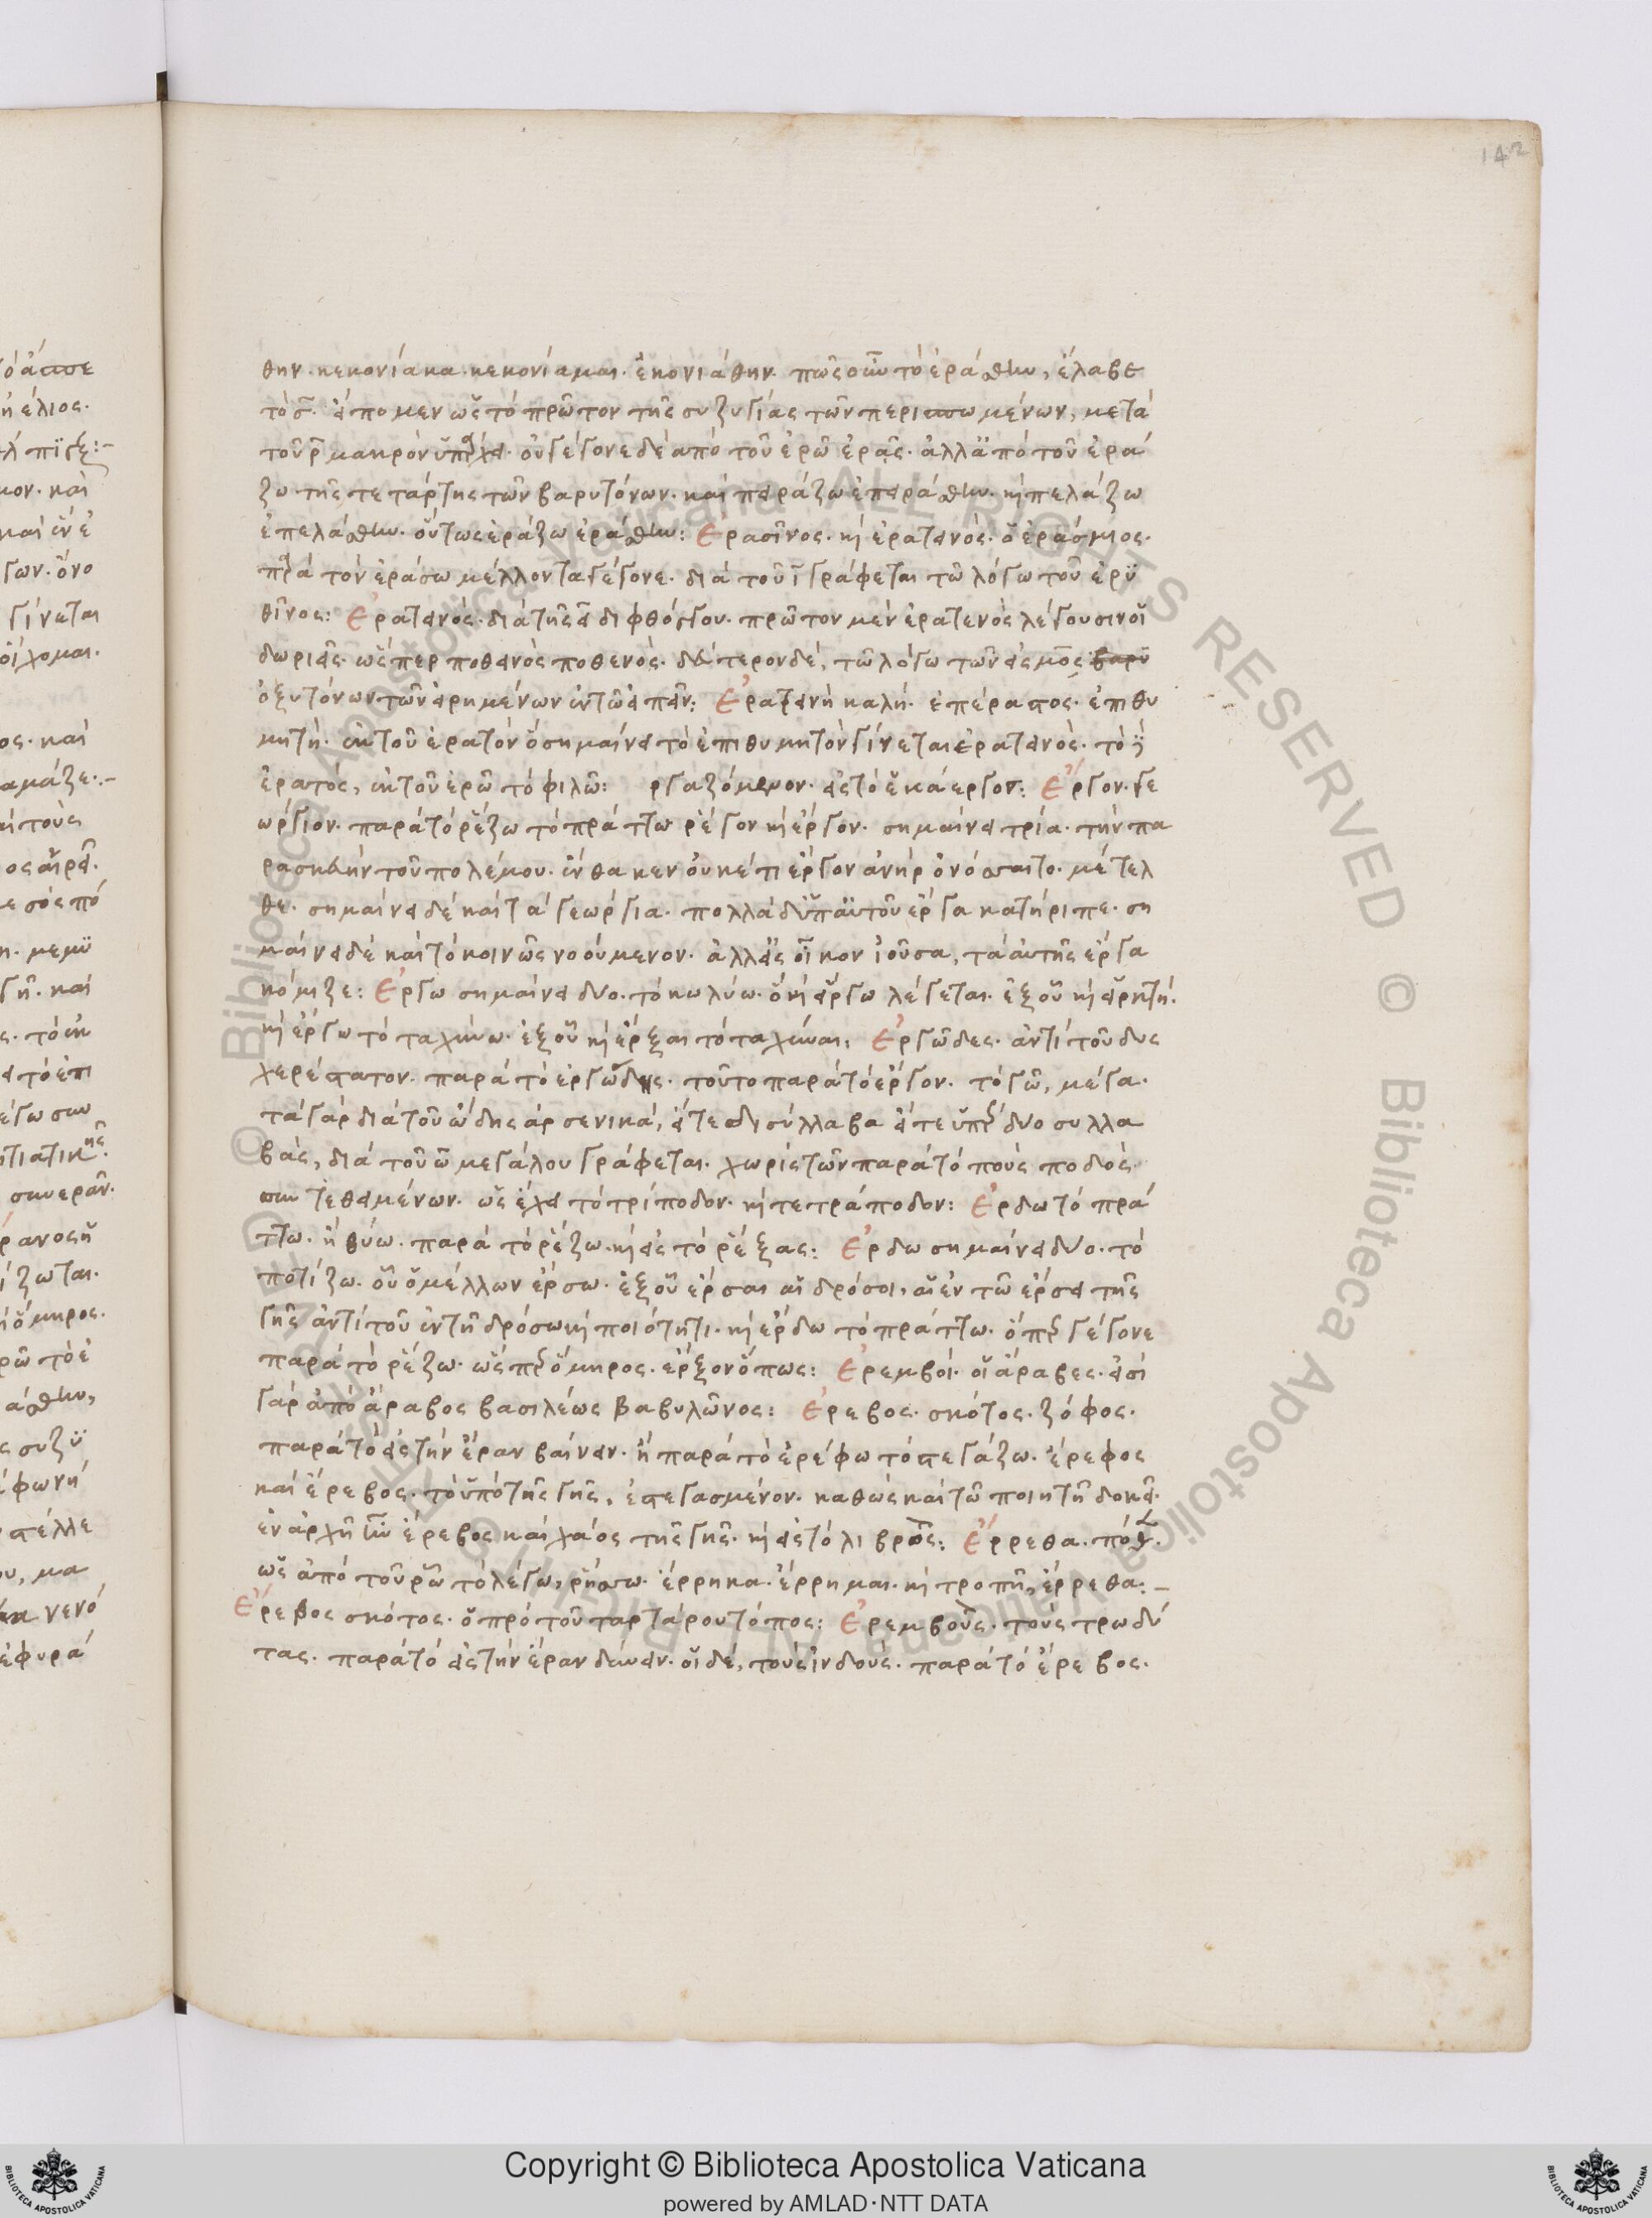 142
θην. κεκονίακα. κεκονίαμαι. ἐκονιάθην. πῶς οὖν τὸ ἐράσθην, ἔλαβε
τὸ σ̄. εἴπομεν ὡς τὸ πρῶτον τῆς συζυγίας τῶν περισπωμένων, μετὰ
τοῦ ρ̄ μακρὸν ὑπάρχει. οὐ γέγονε δὲ ἀπὸ τοῦ ἐρῶ ἐρᾷς. ἀλλ' ἀπὸ τοῦ ἐρά
ζω τῆς τετάρτης τῶν βαρυτόνων. καὶ πειράζω ἐπειράσθην. κ̀ πελάζω
ἐπελάσθην. οὕτως ἐράζω ἐράσθην: Ἐρασῖνος. κ̀ ἐρατεινὸς. ὁ ἐράσμιος.
παρὰ τὸν ἐράσω μέλλοντα γέγονε. διὰ τοῦ ῑ γράφεται τῶ λόγω τοῦ ἐρυ
θῖνος: Ἐρατεινὸς. διὰ τῆς ει διφθόγγου. πρῶτον μὲν ἐρατενὸς λέγουσιν οἱ
δωριεῖς. ὥσπερ ποθεινὸς ποθενὸς. δεύτερον δὲ, τῶ λόγω τῶν εἰς μο̄ς βαρυ
ὀξυτόνων. τῶν εἰρημένων ἐν τῶ εἰπεῖν: Ἐρατεινὴ καλή. ἐπέραστος. ἐπιθυ
μητή. ἐκ τοῦ ἐρατὸν ὃ σημαίνει τὸ ἐπιθυμητὸν γίνεται ἐρατεινὸς. τὸ δὲ
ἐρατός, ἐκ τοῦ ἐρῶ τὸ φιλῶ: ργαζόμενον. εἰς τὸ ἑκάεργον: Ἔργον. γε
ώργιον. παρὰ τὸ ῥέζω τὸ πράττω ῥέγον κ̀ ἔργον. σημαίνει τρία. τὴν πα
ρασκευὴν τοῦ πολέμου. ἔνθα κεν οὐκέτι ἔργον ἀνὴρ ὀνόσαιτο. μετελ
θε. σημαίνει δὲ καὶ τὰ γεώργια. πολλὰ δ' ὑπ' αὐτοῦ ἔργα κατήριπε. ση
μαίνει δὲ καὶ τὸ κοινῶς νοούμενον. ἀλλ' εἰς οἶκον ἰοῦσα, τὰ αὐτῆς ἔργα
κόμιζε: Ἔργω σημαίνει δύο. τὸ κωλύω. ὃ κ̀ εἴργω λέγεται. ἐξ οὗ κ̀ εἱρκτή.
κ̀ ἔργω τὸ ταχύνω. ἐξ οὗ κ̀ ἔρξαι τὸ ταχύναι: Ἐργῶδες. ἀντὶ τοῦ δυς
χερέστατον. παρὰ τὸ ἐργώδης. τοῦτο παρὰ τὸ ἔργον. τὸ γῶ, μέγα.
τὰ γὰρ διὰ τοῦ ώδης ἀρσενικά, εἴτε δισύλλαβα εἴτε ὑπὲρ δύο συλλα
βὰς, διὰ τοῦ ω̄ μεγάλου γράφεται. χωρὶς τῶν παρὰ τὸ ποὺς ποδὸς.
συντεθειμένων. ὡς ἔχει τὸ τρίποδον. κ̀ τετράποδον: Ἔρδω τὸ πρά
ττω. ἢ θύω. παρὰ τὸ ῥέζω. κ̀ εἰς τὸ ῥέξας: Ἔρδω σημαίνει δύο. τὸ
ποτίζω. οὗ ὁ μέλλων ἔρσω. ἐξ οὗ ἔρσαι αἱ δρόσοι. αἱ ἐν τῶ ἔρσει τῆς
γῆς ἀντὶ τοῦ ἐν τῆ δρόσω κ̀ ποιότητι. κ̀ ἔρδω τὸ πράττω. ὅπερ γέγονε
παρὰ τὸ ῥέζω. ὥσπερ ὅμηρος. ἔρξον ὅπως: Ἐρεμβοί. οἱ ἄραβες. εἰσὶ
γὰρ ἀπὸ ἄραβος βασιλέως βαβυλῶνος: Ἔρεβος. σκότος. ζόφος.
παρὰ τὸ εἰς τὴν ἔραν βαίνειν. ἢ παρὰ τὸ ἐρέφω τὸ στεγάζω. ἔρεφος
καὶ ἔρεβος. τὸ ὑπὸ τῆς γῆς, ἐστεγασμένον. καθὼς καὶ τῶ ποιητῆ δοκεῖ.
ἐν ἀρχῆ ἦν ἔρεβος καὶ χάος τῆς γῆς. κ̀ εἰς τὸ λιβρὸς: Ἔρρεθα. πόθεν.
ὡς ἀπὸ τοῦ ῥῶ τὸ λέγω, ῥήσω. ἔρρηκα. ἔρρημαι. κ̀ τροπῆ, ἔρρεθα:-
Ἔρεβος σκότος. ὁ πρὸ τοῦ ταρτάρου τόπος: Ἐρεμβοὺς. τοὺς τρωδύ
τας. παρὰ τὸ εἰς τὴν ἔραν δύνειν. οἱ δὲ, τοὺς ἰνδοὺς. παρὰ τὸ ἔρεβος.
Copyright © Biblioteca Apostolica Vaticana
powered by AMLAD·NTT DATA